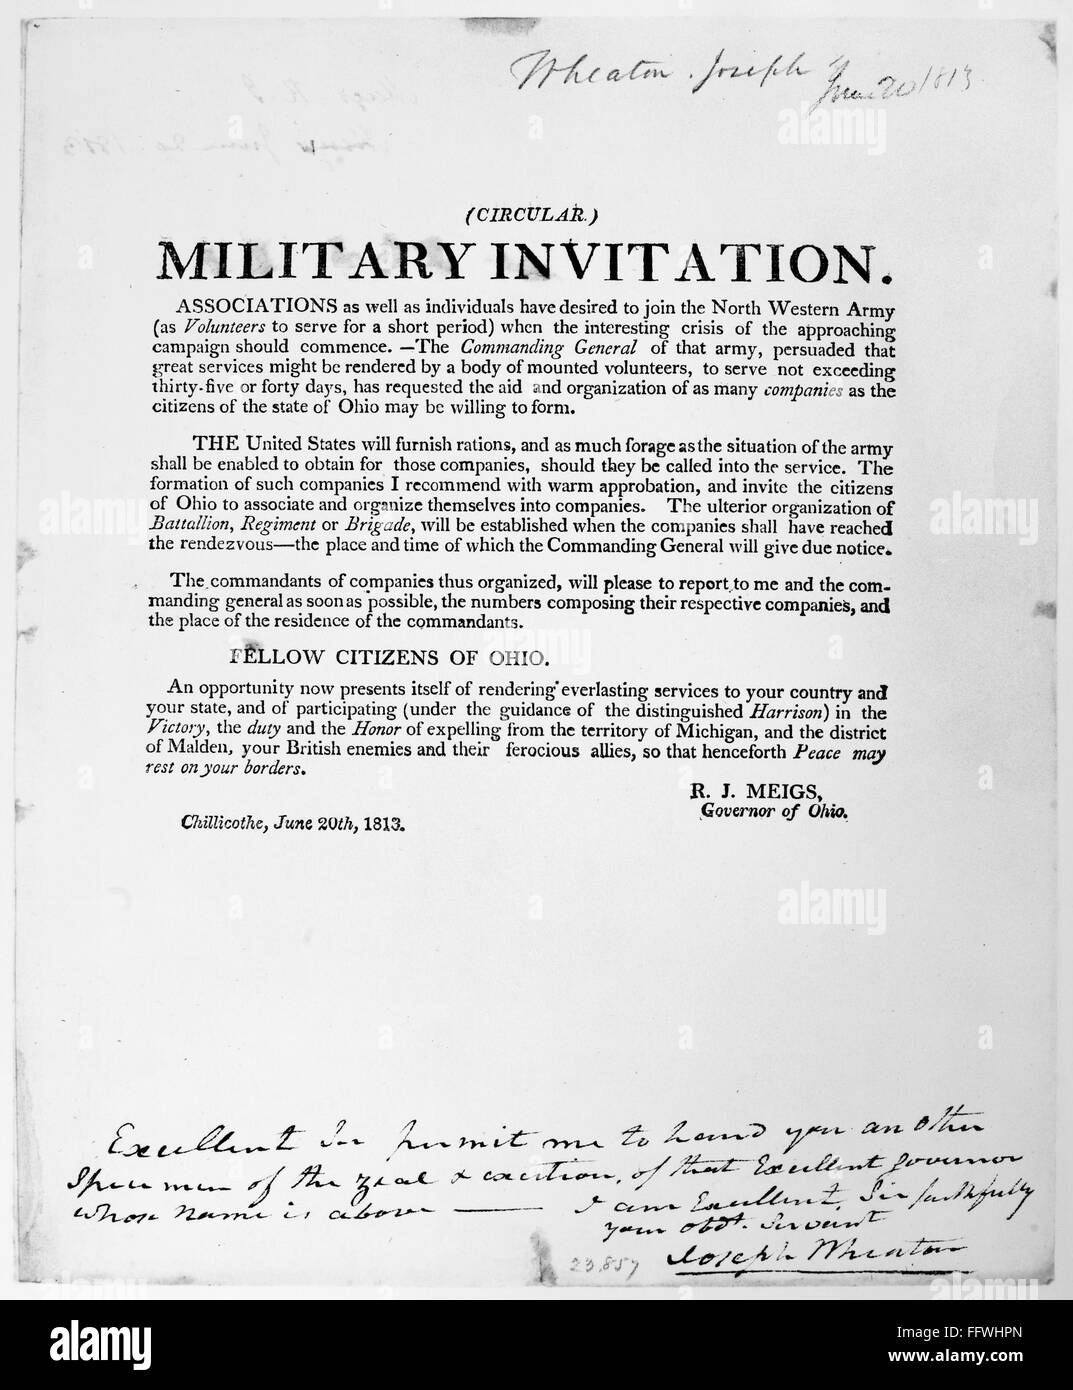 Wheaton Joseph
June 20 1813
(CIRCULAR.)
MILITARY INVITATION.
ASSOCIATIONS as well as individuals have desired to join the North Western Army
(as Volunteers to serve for a short period) when the interesting crisis of the approaching
campaign should commence. —The Commanding General of that army, persuaded that
great services might be rendered by a body of mounted volunteers, to serve not exceeding
thirty-five or forty days, has requested the aid and organization of as many companies as the
citizens of the state of Ohio may be willing to form.
THE United States will furnish rations, and as much forage as the situation of the army
shall be enabled to obtain for those companies, should they be called into the service. The
formation of such companies I recommend with warm approbation, and invite the citizens
of Ohio to associate and organize themselves into companies. The ulterior organization of
Battallion, Regiment or Brigade, will be established when the companies shall have reached
the rendezvous—the place and time of which the Commanding General will give due notice.
The commandants of companies thus organized, will please to report to me and the com-
manding general as soon as possible, the numbers composing their respective companies, and
the place of the residence of the commandants.
FELLOW CITIZENS OF OHIO.
An opportunity now presents itself of rendering everlasting services to your country and
your state, and of participating (under the guidance of the distinguished Harrison) in the
Victory, the duty and the Honor of expelling from the territory of Michigan, and the district
of Malden, your British enemies and their ferocious allies, so that henceforth Peace may
rest on your borders.
R. J. MEIGS,
Governor of Ohio.
Chillicothe, June 20th, 1813.
Excellent Sir permit me to hand you another
Specimen of the zeal & exertion, of that Excellent governor
whose name is above — I am Excellent Sir faithfully
your obdt. Servant
Joseph Wheaton
23,857
alamy
Image ID: FFWHPN
www.alamy.com